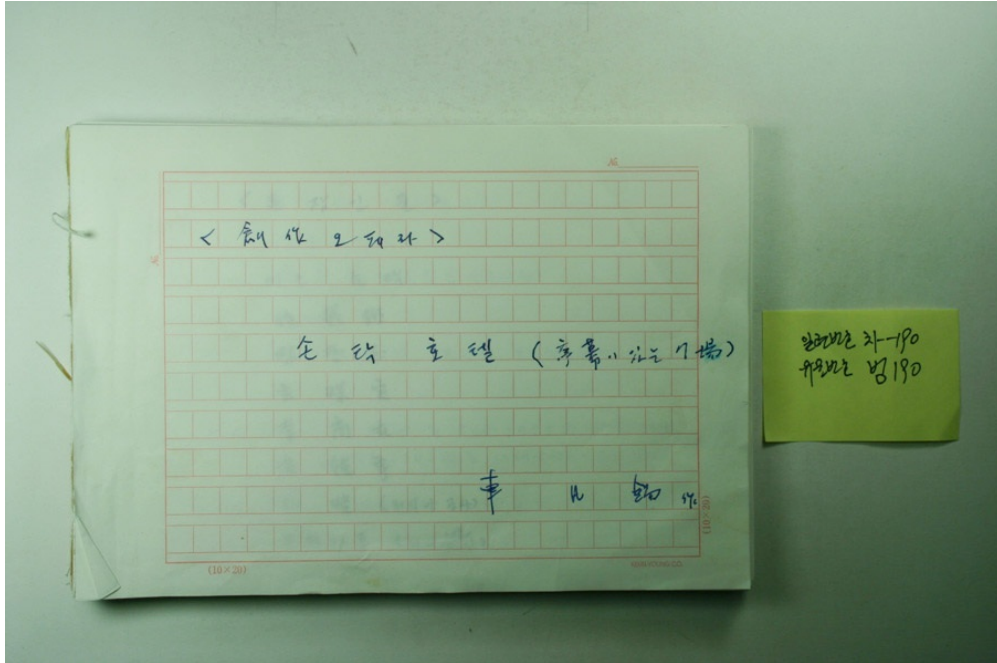 №
< 創作오페라 >
손탁호텔 (序幕이 있는 7場)
車凡錫 作
№
(10×20)
(10×20)
일련번호 차-190
유일번호 범190